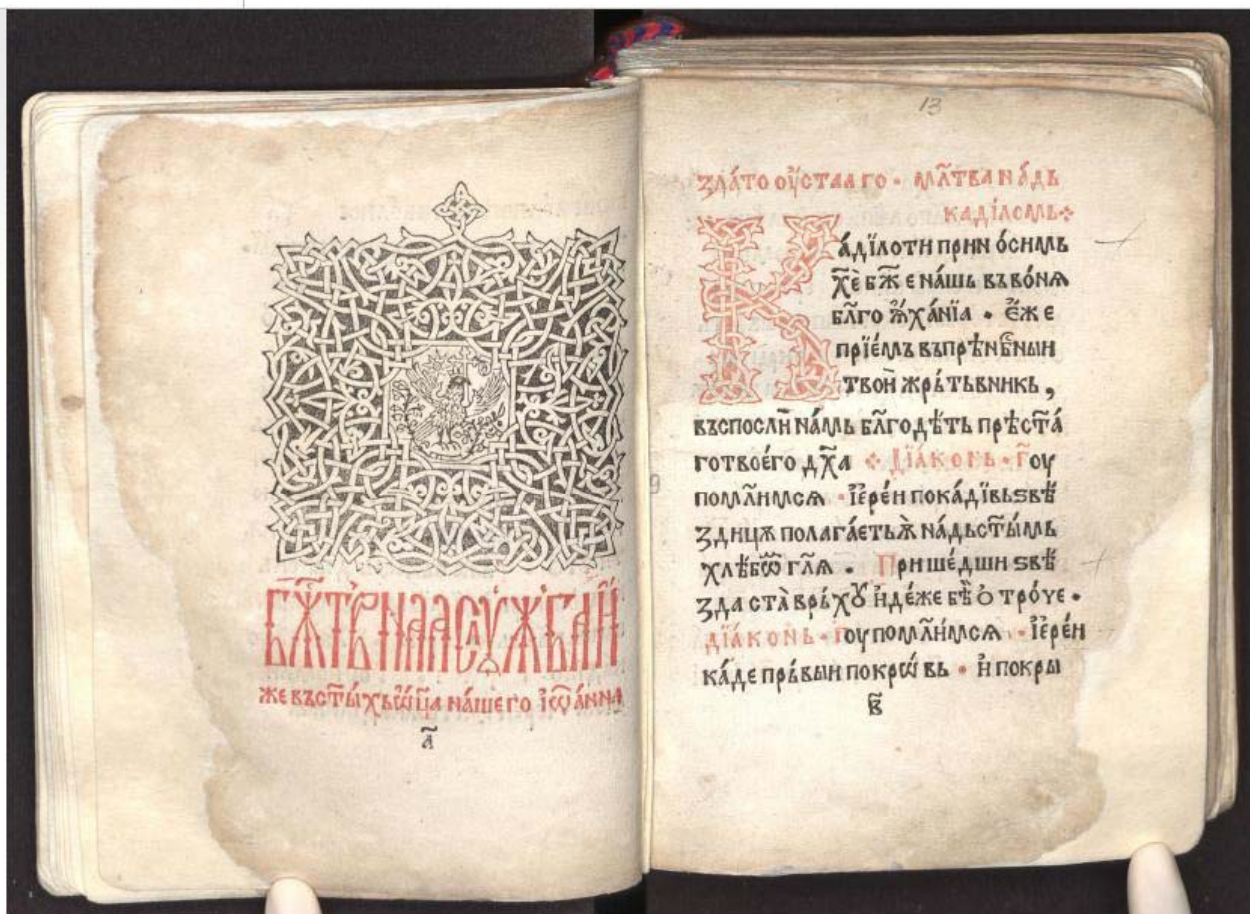 Бжⷭ҇тв҃ наа слꙋжба, и҆
же въ ст҃ы́хъ ѿц҃а на́шего і҆ѡа́нна
а҃
13
Зла́тооу҆стааго • мл҃тва на́дь
кади́ломь
Ка́дїлоти прин о́симь
хе҃ бж҃е на́шь въво́нѧ
бл҃го ѫ҆ха́нїа • е҆́же
прїе́мъ въпрѣнбⷭ҇ныи
твои̏ жрь́тьвникь,
въспосли̏ на́мь бл҃годѣ́ть прѣст҃а
готвоего дх҃а Дїа́конь • Г҃оу
помл҃имсѧ • І҆ере́и пока́дївь ѕвѣ
здицѫ полага́еть ѫ҆ на́дьст҃ы́мь
хлѣ́бѡⷨ гл҃ѧ • Пришє́дши ѕвѣ
зда ста̀ врь́хꙋ и҆де́же бѣ̀ ѻ҆тро́че •
Дїа́конь • Г҃оу помл҃и́мсѧ • І҆ере́и
ка́де прь́выи покрѡ́вь • и҆ покры
в҃